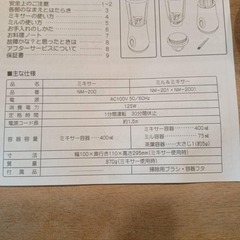 安全上のご注意 1-2
各部のなまえとはたらき 3
ミキサーの使い方 4
ミルの使い方 5
お手入れのしかた 6
お料理ノート 7
故障かな?と思ったときは 8
アフターサービスについて 9
保証書
■主な仕様
品名 ミキサー ミル&ミキサー
品番 NM-200 NM-201・NM-2001
電源 AC100V 50/60Hz
消費電力 125W
定格時間 1分間運転 30分間休止
電源コード長 約1.5m
容器容量 ミキサー容器……400㎖ ミキサー容器……400㎖
ミル容器……75㎖
茶葉容器……大さじ1(約5g)
寸法 幅100×奥行き110×高さ295mm(ミキサー使用時)
質量 870g(ミキサー使用時)
付属品 掃除用ブラシ・容器フタ